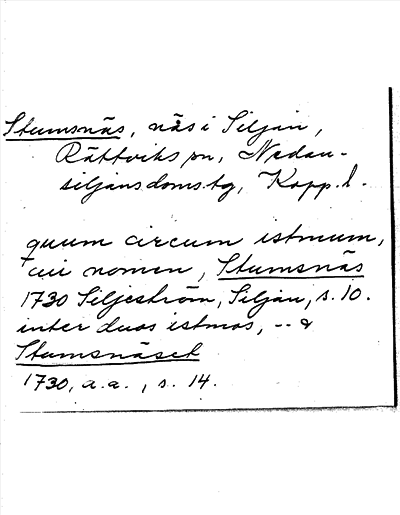 Stumsnäs, näs i Siljan,
Rättviks sn, Nedan-
siljans doms. tg, Kopp. l.
quum circum istmum,
cui nomen, Stumsnäs
1730 Siljeström, Siljan, s. 10.
inter duos istmos, -- &
Stumsnäset
1730, a.a., s. 14.